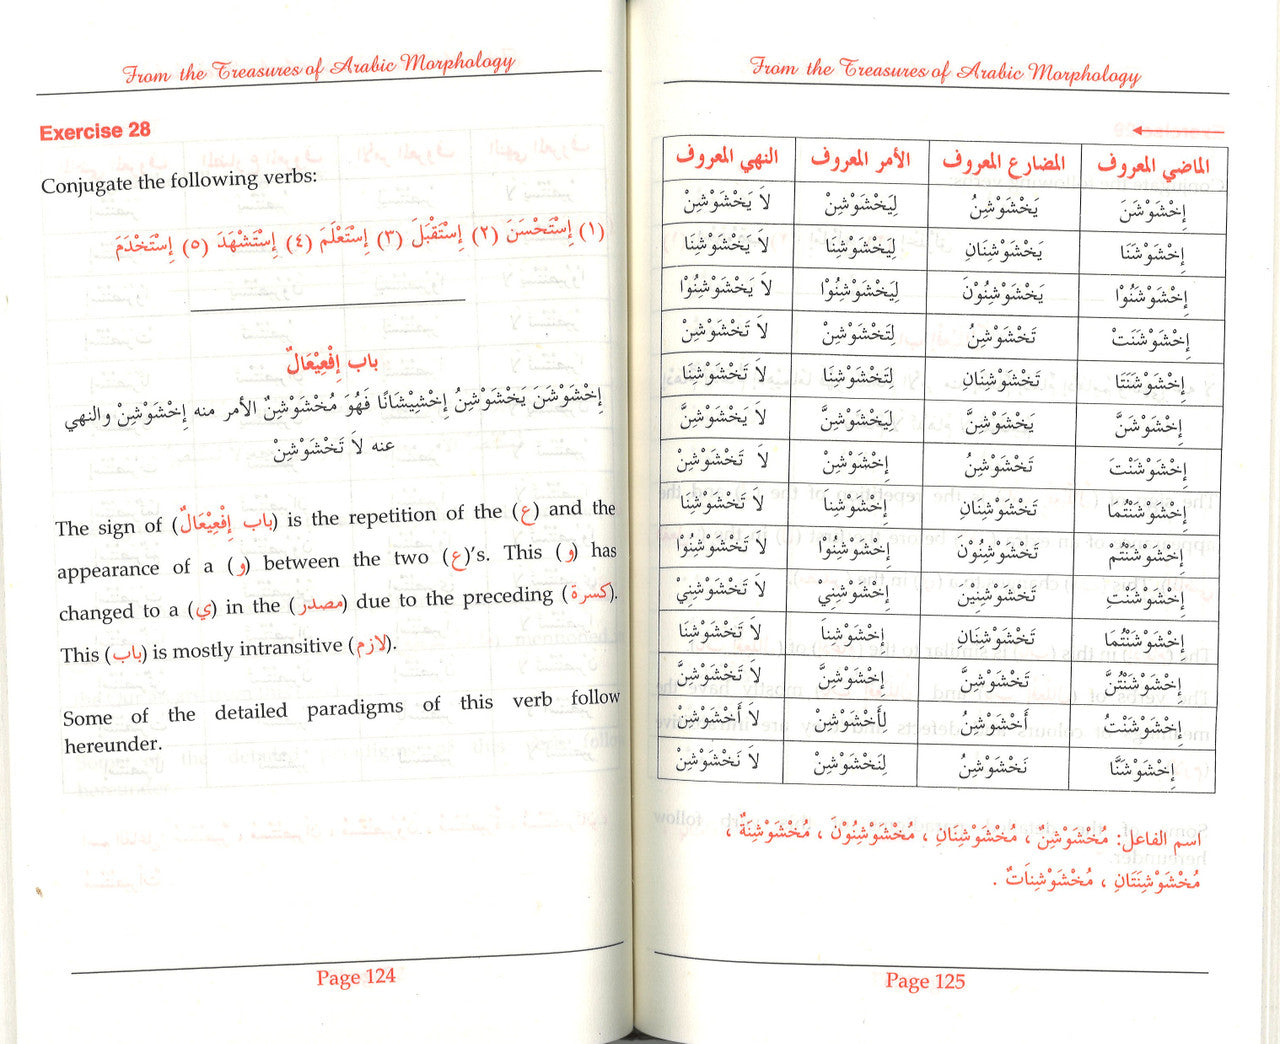 From the Treasures of Arabic Morphology
Exercise 28
Conjugate the following verbs:
(١) إِسْتَحْسَنَ (٢) إِسْتَقْبَلَ (٣) إِسْتَعْلَمَ (٤) إِسْتَشْهَدَ (٥) إِسْتَخْدَمَ
باب إِفْعِيْعَالٌ
إِخْشَوْشَنَ يَخْشَوْشِنُ إِخْشِيْشَانًا فَهُوَ مُخْشَوْشِنٌ الأمر منه إِخْشَوْشِنْ والنهي
عنه لاَ تَخْشَوْشِنْ
The sign of (باب إِفْعِيْعَالٌ) is the repetition of the (ع) and the
appearance of a (و) between the two (ع)'s. This (و) has
changed to a (ي) in the (مصدر) due to the preceding (كسرة).
This (باب) is mostly intransitive (لازم).
Some of the detailed paradigms of this verb follow
hereunder.
Page 124
From the Treasures of Arabic Morphology
الماضي المعروف المضارع المعروف الأمر المعروف النهي المعروف
إِخْشَوْشَنَ يَخْشَوْشِنُ لِيَخْشَوْشِنْ لاَ يَخْشَوْشِنْ
إِخْشَوْشَنَا يَخْشَوْشِنَانِ لِيَخْشَوْشِنَا لاَ يَخْشَوْشِنَا
إِخْشَوْشَنُوْا يَخْشَوْشِنُوْنَ لِيَخْشَوْشِنُوْا لاَ يَخْشَوْشِنُوْا
إِخْشَوْشَنَتْ تَخْشَوْشِنُ لِتَخْشَوْشِنْ لاَ تَخْشَوْشِنْ
إِخْشَوْشَنَتَا تَخْشَوْشِنَانِ لِتَخْشَوْشِنَا لاَ تَخْشَوْشِنَا
إِخْشَوْشَنَّ يَخْشَوْشِنَّ لِيَخْشَوْشِنَّ لاَ يَخْشَوْشِنَّ
إِخْشَوْشَنْتَ تَخْشَوْشِنُ إِخْشَوْشِنْ لاَ تَخْشَوْشِنْ
إِخْشَوْشَنْتُمَا تَخْشَوْشِنَانِ إِخْشَوْشِنَا لاَ تَخْشَوْشِنَا
إِخْشَوْشَنْتُمْ تَخْشَوْشِنُوْنَ إِخْشَوْشِنُوْا لاَ تَخْشَوْشِنُوْا
إِخْشَوْشَنْتِ تَخْشَوْشِنِيْنَ إِخْشَوْشِنِيْ لاَ تَخْشَوْشِنِيْ
إِخْشَوْشَنْتُمَا تَخْشَوْشِنَانِ إِخْشَوْشِنَا لاَ تَخْشَوْشِنَا
إِخْشَوْشَنْتُنَّ تَخْشَوْشِنَّ إِخْشَوْشِنَّ لاَ تَخْشَوْشِنَّ
إِخْشَوْشَنْتُ أَخْشَوْشِنُ لِأَخْشَوْشِنْ لاَ أَخْشَوْشِنْ
إِخْشَوْشَنَّا نَخْشَوْشِنُ لِنَخْشَوْشِنْ لاَ نَخْشَوْشِنْ
اسم الفاعل: مُخْشَوْشِنٌ ، مُخْشَوْشِنَانِ ، مُخْشَوْشِنُوْنَ ، مُخْشَوْشِنَةٌ ،
مُخْشَوْشِنَتَانِ ، مُخْشَوْشِنَاتٌ .
Page 125